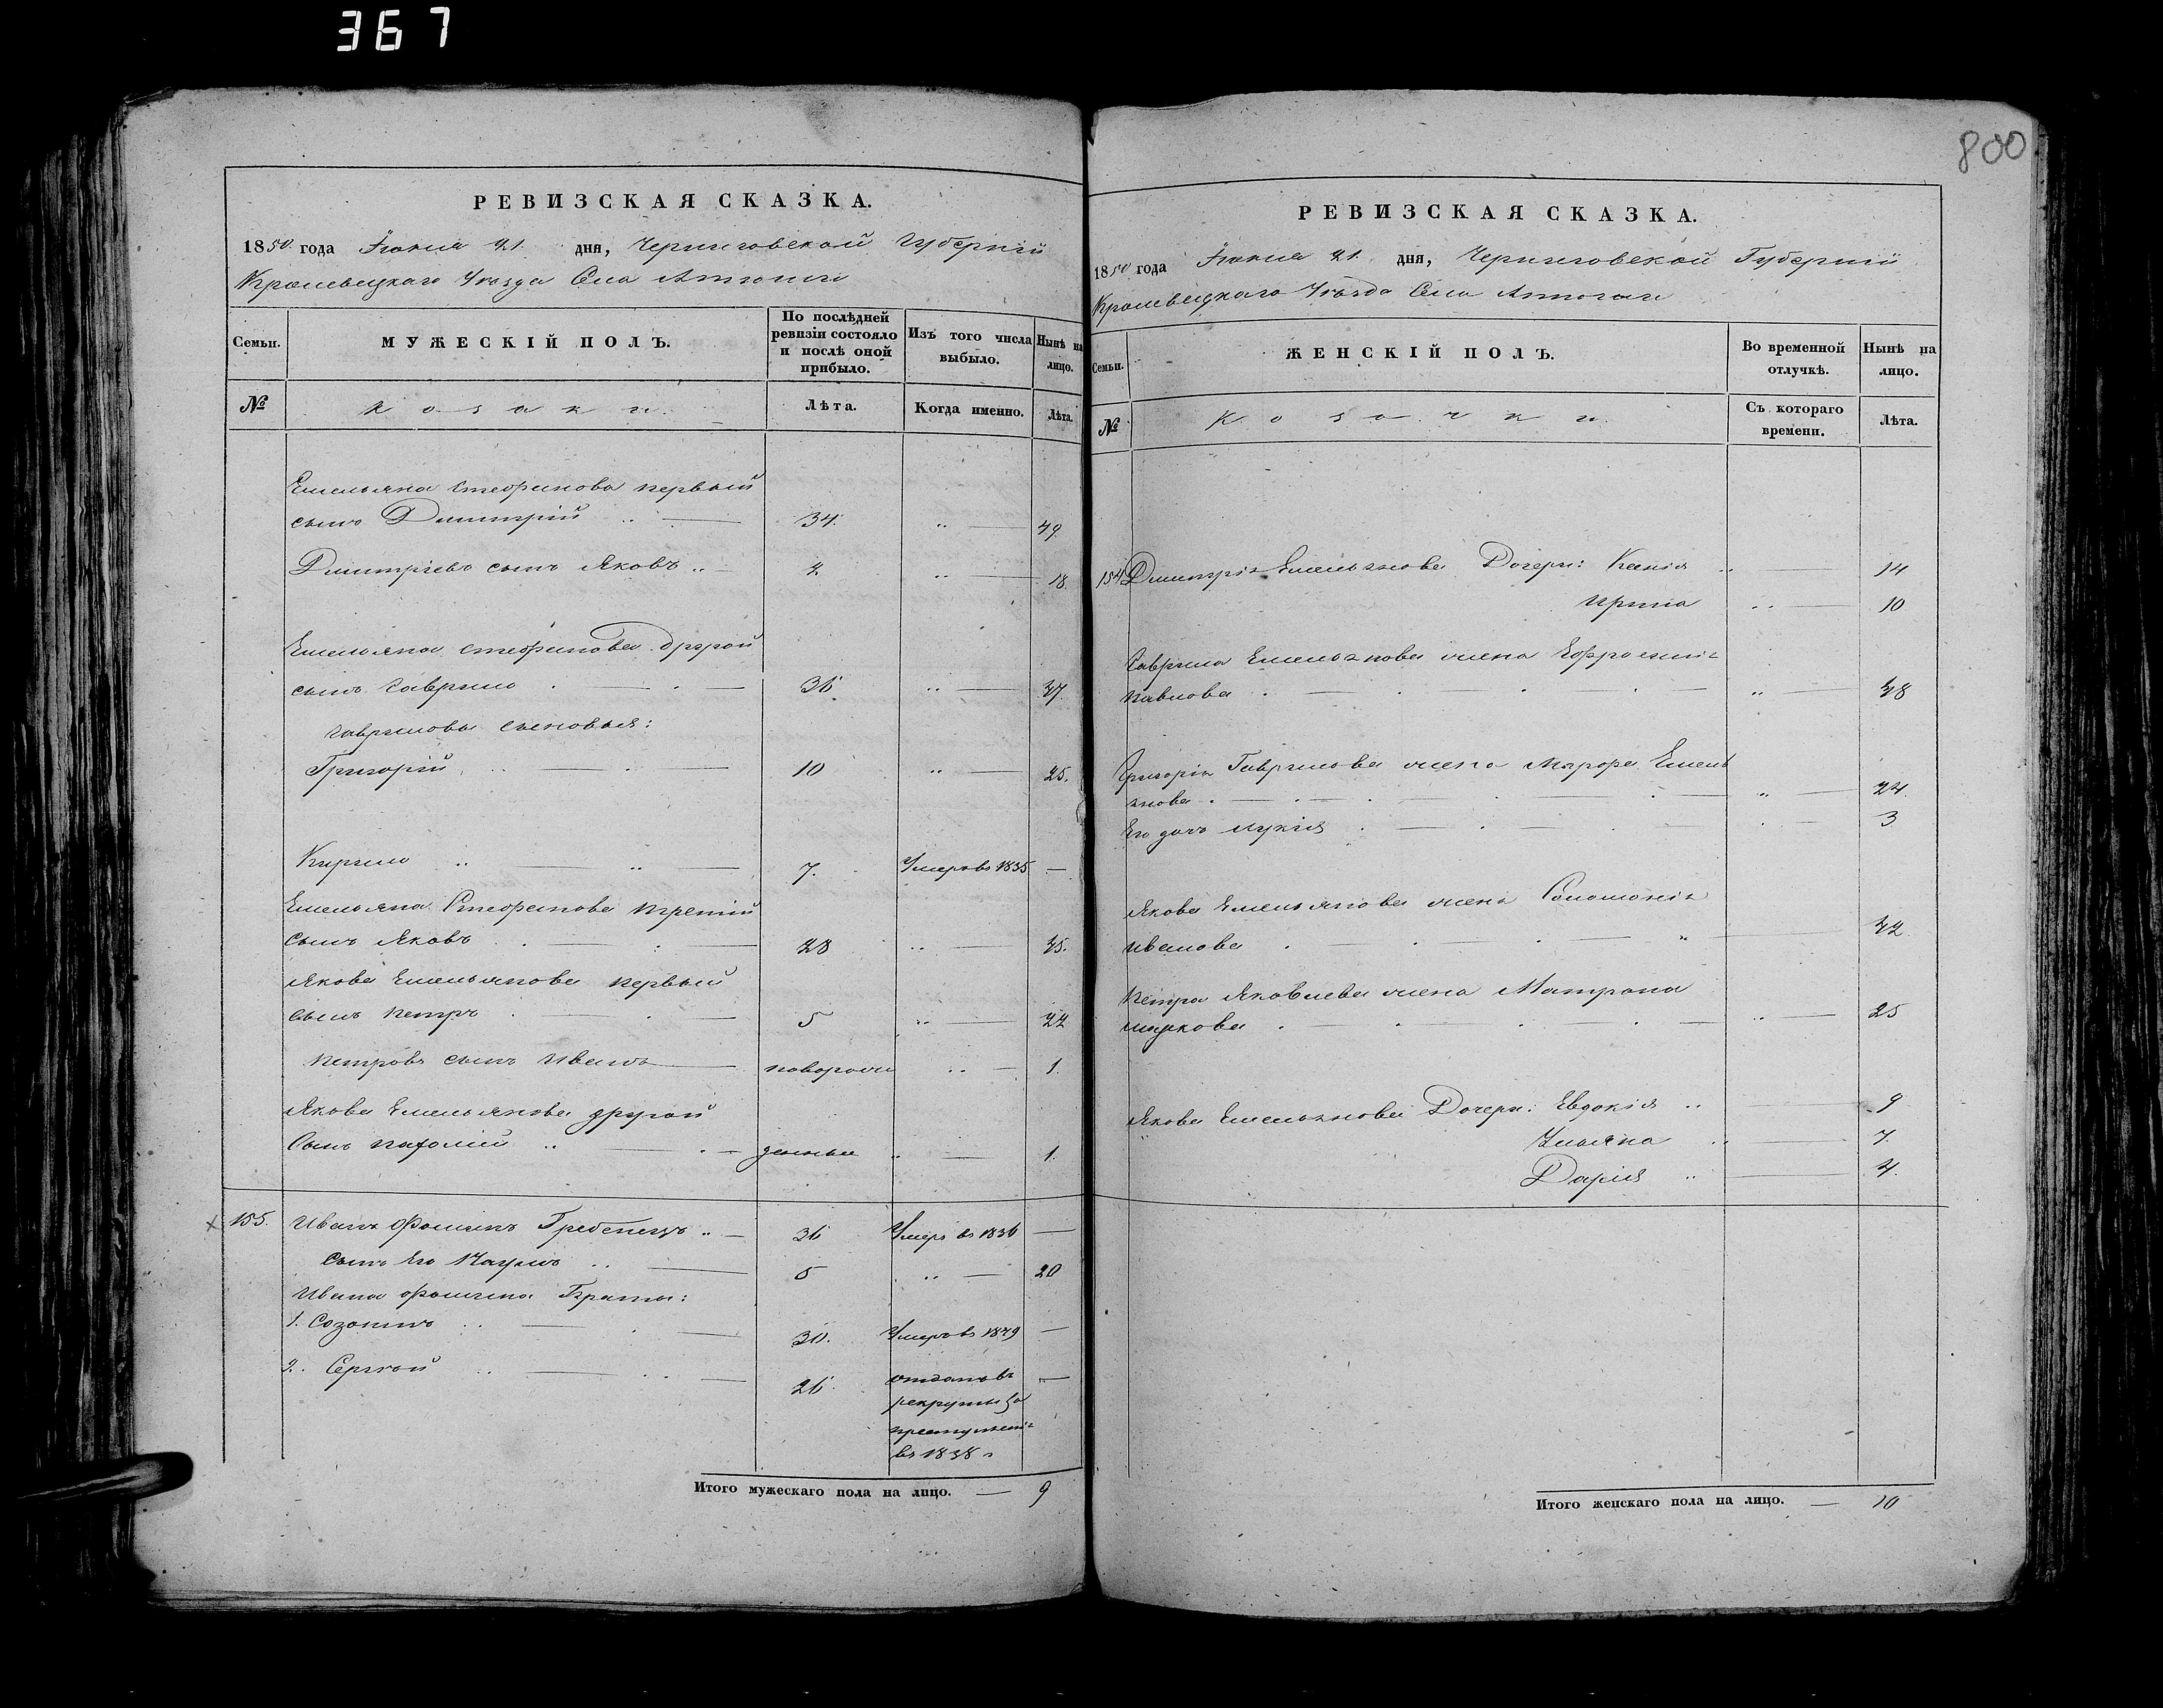 367
800
РЕВИЗСКАЯ СКАЗКА.
1850 года Іюния 21 дня, Черниговской Губерніи
Кролевецкаго Уѣзда Села
Семьи.
МУЖЕСКІЙ ПОЛЪ.
По послѣдней ревизіи состояло и послѣ оной прибыло.
Изъ того числа выбыло.
Нынѣ на лицо.
№
Козаки
Лѣта.
Когда именно.
Лѣта.
Емельяна Стефанова первый
сынъ Димитрій 34. 49
Димитріевъ сынъ Яковъ 18.
Емельяна Стефанова другой
сынъ Гаврило 36 37.
Гавриловы сыновья:
Григорій 10 25.
Кирило 7. Умеръ въ 1835 —
Емельяна Стефанова третій
сынъ Яковъ 28
Якова Емельянова первый
сынъ Петръ 5 22
Петровъ сынъ Иванъ новорож 1.
Якова Емельянова другой
Сынъ денные 1.
155. Иванъ Фоминъ Гребенецъ 36 Умеръ въ 1836 —
Сынъ Его Наумъ 5 20
Ивана Фомина Браты:
1. Созонтъ 30. Умеръ въ 1849 —
2. Сергѣй 26 отданъ въ —
рекруты за
въ 1838 г
Итого мужескаго пола на лицо. — 9
РЕВИЗСКАЯ СКАЗКА.
1850 года Іюния 21 дня, Черниговской Губерніи
Кролевецкаго Уѣзда Села
Семьи.
ЖЕНСКІЙ ПОЛЪ.
Во временной отлучкѣ.
Нынѣ на лицо.
№
Козачки
Съ котораго времени.
Лѣта.
154 Димитрія Емельянова Дочери: Ксенія 14
Ирина 10
Гаврила Емельянова жена Ефросинія
Павлова 38
Григорія Гаврилова жена Марфа Емель
янова 24
Его дочь Лукія 3
Якова Емельянова жена Соломонія
Иванова 42
Петра Яковлева жена Матрона
Маркова 25
Якова Емельянова Дочери: Евдокія 9
Ульяна 7.
Дарія 4.
Итого женскаго пола на лицо. — 10